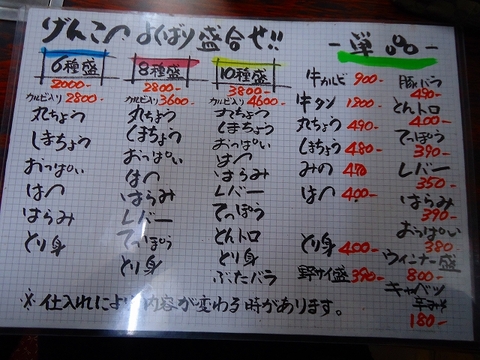 げんこつ よくばり盛合せ!!
6種盛
2000-
カルビ入り2800-
丸ちょう
しまちょう
おっぱい
はつ
はらみ
とり身
8種盛
2800-
カルビ入り3600-
丸ちょう
しまちょう
おっぱい
はつ
はらみ
レバー
てっぽう
とり身
10種盛
3800-
カルビ入り4600-
しまちょう
おっぱい
はつ
はらみ
レバー
てっぽう
とんトロ
とり身
ぶたバラ
-単品-
牛カルビ 900-
牛タン
丸ちょう 490-
しまちょう 480-
みの
はつ 400-
とり身 400-
野サイ盛 390-
豚バラ
490-
とんトロ
400-
てっぽう
390-
レバー
350-
はらみ
390-
おっぱい
380
ウィンナー盛
800-
キャベツ
180-
※仕入れにより内容が変わる時があります。